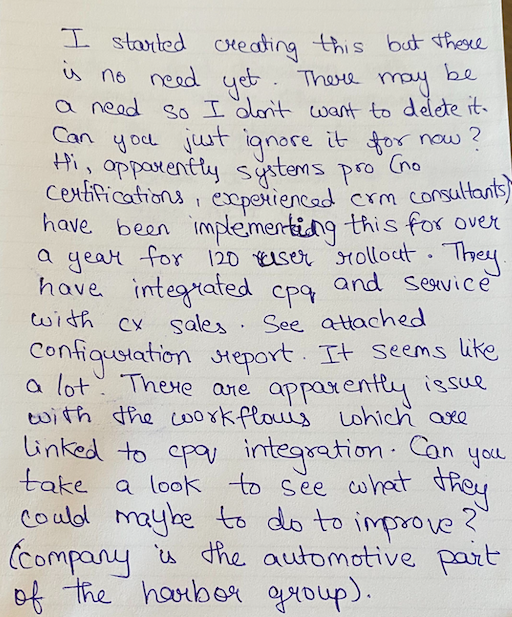 I started creating this but there
is no need yet. There may be
a need so I don't want to delete it.
Can you just ignore it for now?
Hi, apparently systems pro (no
certifications, experienced crm consultants)
have been implementing this for over
a year for 120 user rollout. They
have integrated cpq and service
with cx sales. See attached
configuration report. It seems like
a lot. There are apparently issue
with the workflows which are
linked to cpq integration. Can you
take a look to see what they
could maybe to do to improve?
(company is the automotive part
of the harbor group).